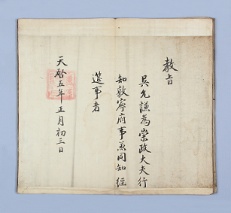 教旨
吳允謙為崇政大夫行
知敦寧府事兼同知經
筵事者
天啓五年正月初三日